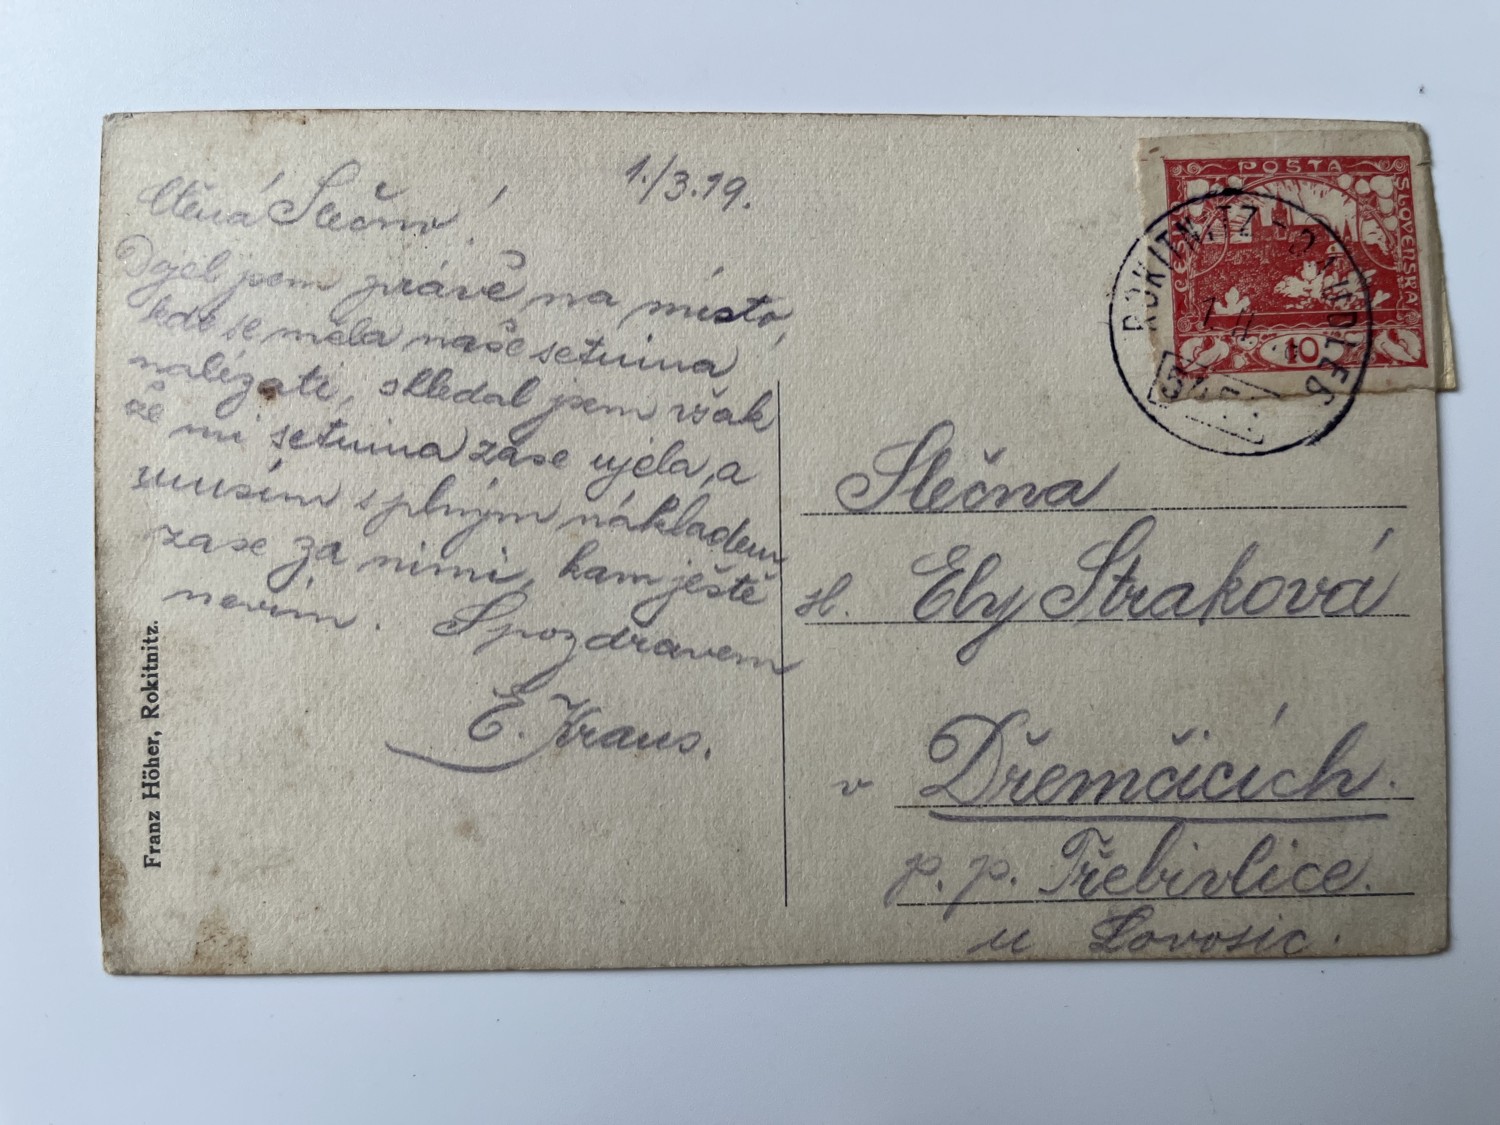 1./3.19.
Ctěná Slečno!
Dojel jsem právě na místo,
kde se měla naše setnina
nalézati, shledal jsem však
že mi setnina zase ujela, a
musím s plným nákladem
zase za nimi, kam ještě
nevím. S pozdravem
E. Kraus.
Franz Höher, Rokitnitz.
POŠTA
ČESKO
SLOVENSKÁ
10
ROKITNITZ
Slečna
sl. Ely Straková
v Dřemčicích.
p. p. Třebivlice.
u Lovosic.